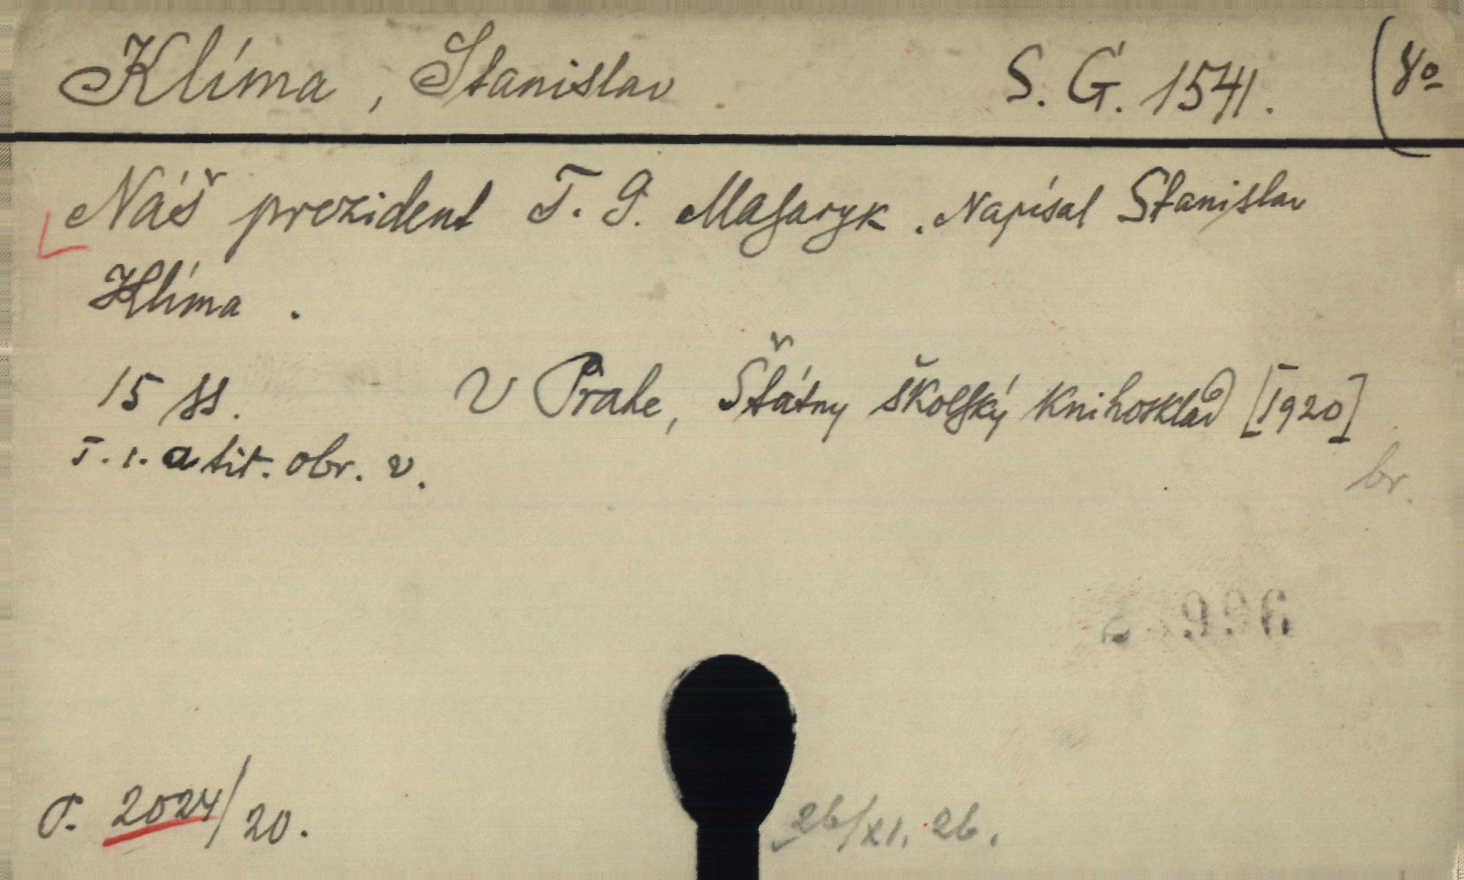 Klíma, Stanislav S. G. 1541. (8º
Náš prezident T. G. Masaryk. Napísal Stanislav
Klíma.
15 ss. V Prahe, Štátny školský knihosklad [1920]
T. i. a tit. obr. v.
br.
996
2024/20.
26/XI. 26.